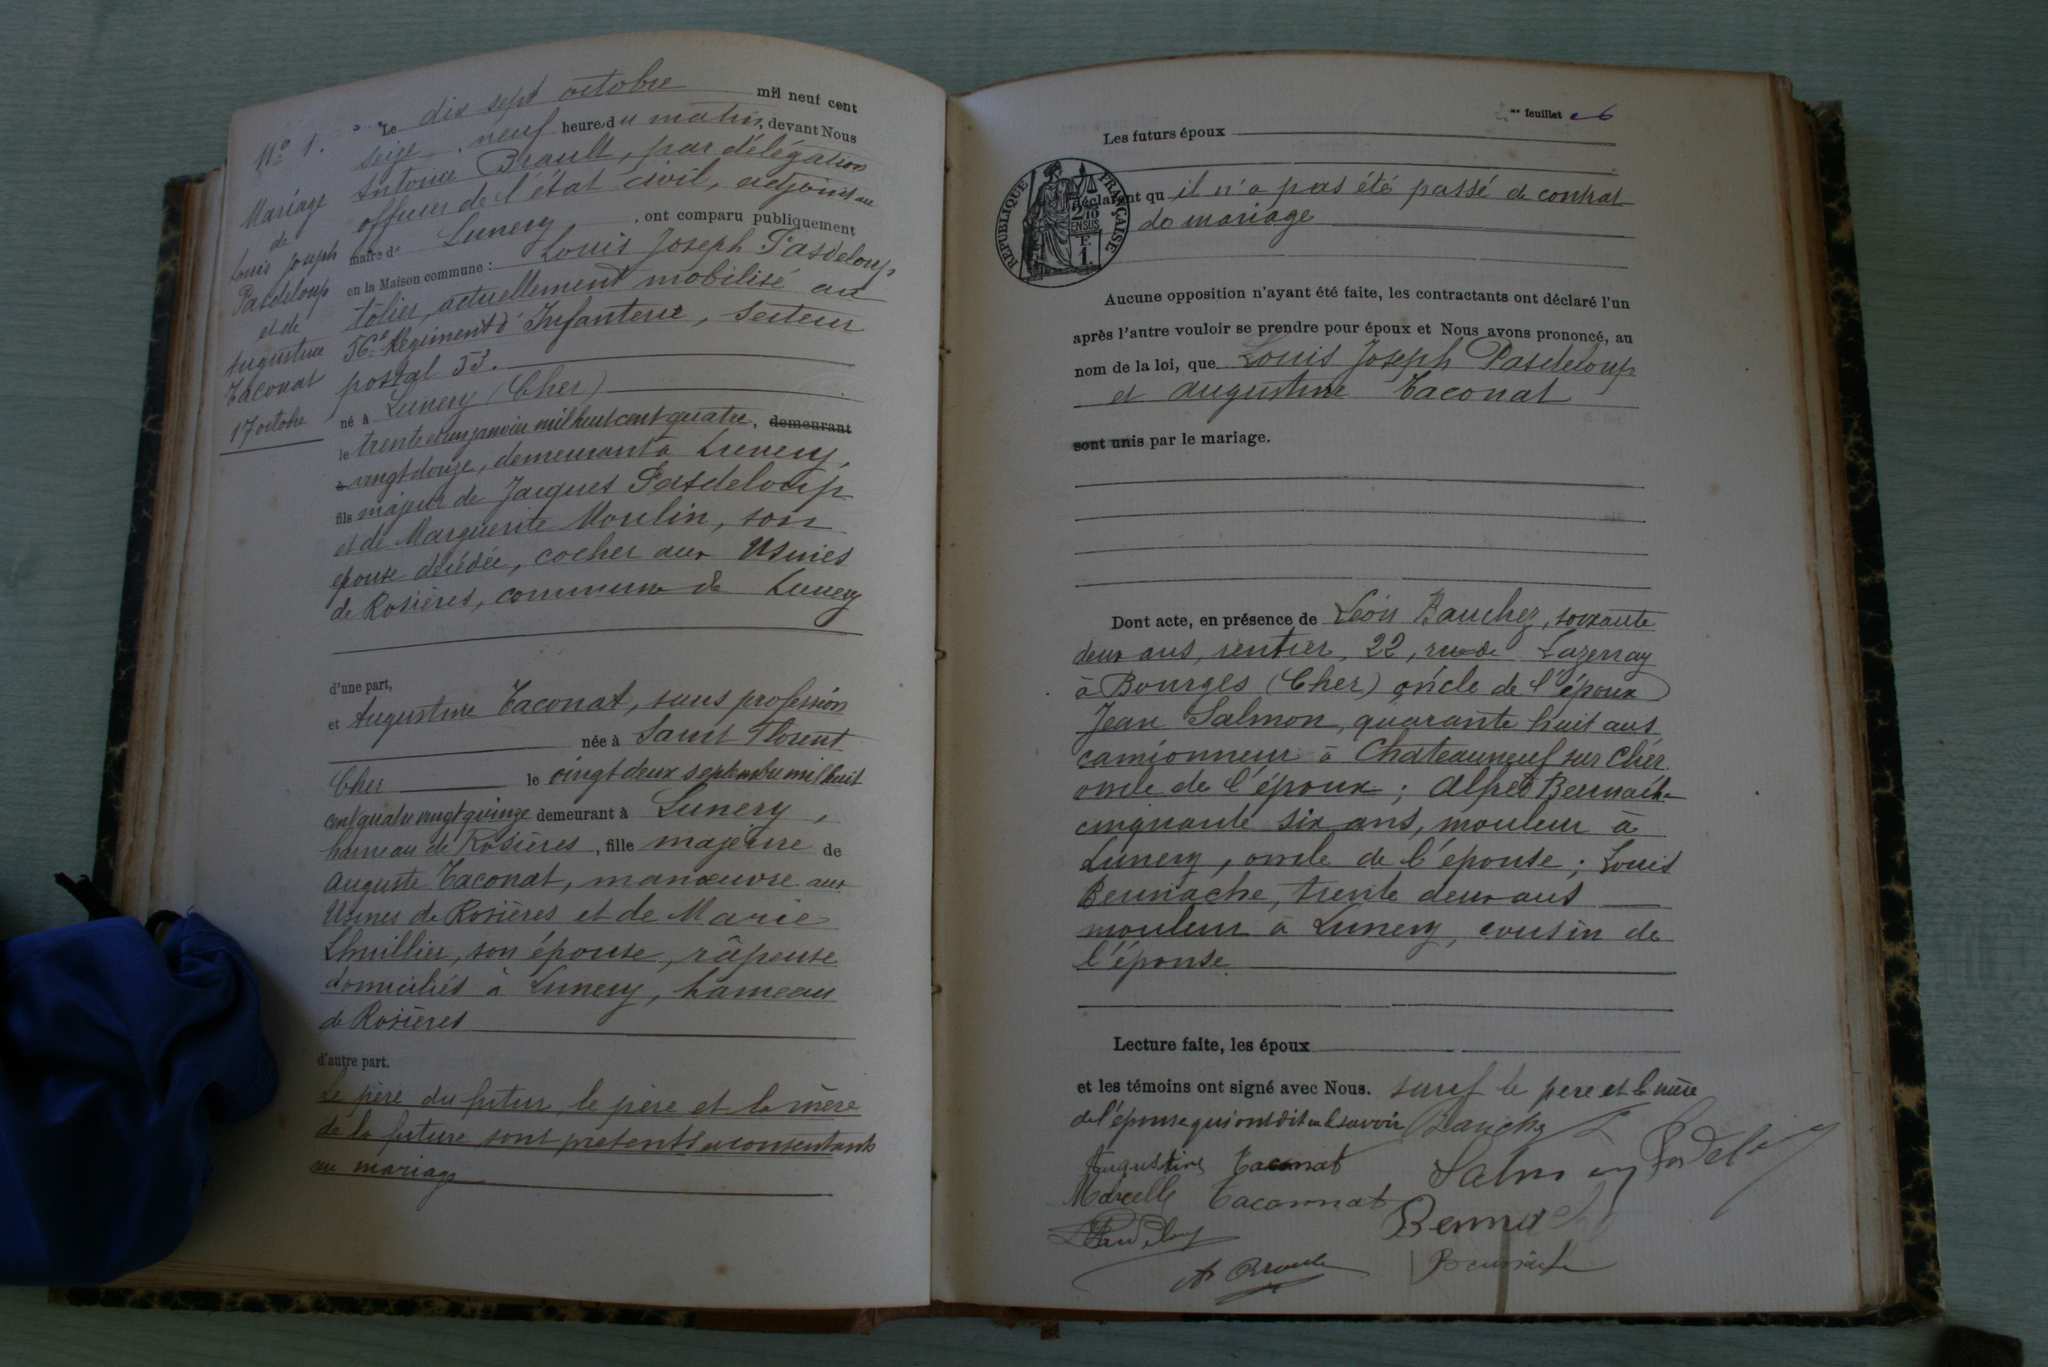 N° 1.
Mariage
de
Louis Joseph
Pasdeloup
et de
Augustine
Taconat
17 octobre
Le dix sept octobre mil neuf cent
seize, neuf heure du matin, devant Nous
Antoine Brault, par délégation
officier de l'état civil, adjoint au
maire de Lunery, ont comparu publiquement
en la Maison commune : Louis Joseph Pasdeloup
tôlier, actuellement mobilisé au
56e Régiment d'Infanterie, secteur
postal 53.
né à Lunery (Cher)
le trente et un janvier mil huit cent quatre, demeurant
à vingt douze, demeurant à Lunery,
fils majeur de Jacques Pasdeloup
et de Marguerite Moulin, son
épouse décédée, cocher aux Usines
de Rosières, commune de Lunery
d'une part,
et Augustine Taconat, sans profession
née à Saint Florent
Cher le vingt deux septembre mil huit
cent quatre vingt quinze demeurant à Lunery,
hameau de Rosières, fille majeure de
Auguste Taconat, manœuvre aux
Usines de Rosières et de Marie
Lhuillier, son épouse, râpeuse
domiciliés à Lunery, hameau
de Rosières
d'autre part.
Le père du futur, le père et la mère
de la future sont présents et consentants
au mariage
me feuillet 26
Les futurs époux
RÉPUBLIQUE FRANÇAISE
2/10 EN SUS
F.
1.
déclarent qu'il n'a pas été passé de contrat
de mariage
Aucune opposition n'ayant été faite, les contractants ont déclaré l'un
après l'autre vouloir se prendre pour époux et Nous avons prononcé, au
nom de la loi, que Louis Joseph Pasdeloup
et Augustine Taconat
sont unis par le mariage.
Dont acte, en présence de Léon Bauchez, soixante
deux ans, rentier, 22, rue de Lazenay
à Bourges (Cher) oncle de l'époux
Jean Salmon, quarante huit ans
camionneur à Chateauneuf sur Cher
oncle de l'époux ; Alfred Bernache
cinquante six ans, mouleur à
Lunery, oncle de l'épouse ; Louis
Bernache, trente deux ans
mouleur à Lunery, cousin de
l'épouse
Lecture faite, les époux
et les témoins ont signé avec Nous. sauf le père et la mère
de l'épouse qui ont dit ne le savoir Bauchez
Augustine Taconat Salmon Pasdeloup
Marcelle Taconnat
Bernache
A Brault